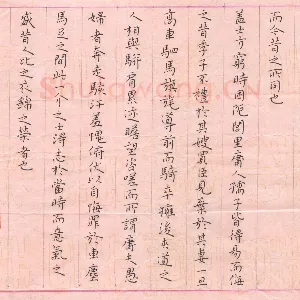 而今昔之所同也
盖士方窮時困阨閭里庸人孺子皆得易而侮
之若季子不禮於其嫂買臣見棄於其妻一旦
高車駟馬旗旄導前而騎卒擁後夾道之
人相與駢肩累迹瞻望咨嗟而所謂庸夫愚
婦者奔走駭汗羞愧俯伏以自悔罪於車塵
馬足之間此一介之士得志於當時而意氣之
盛昔人比之衣錦之榮者也